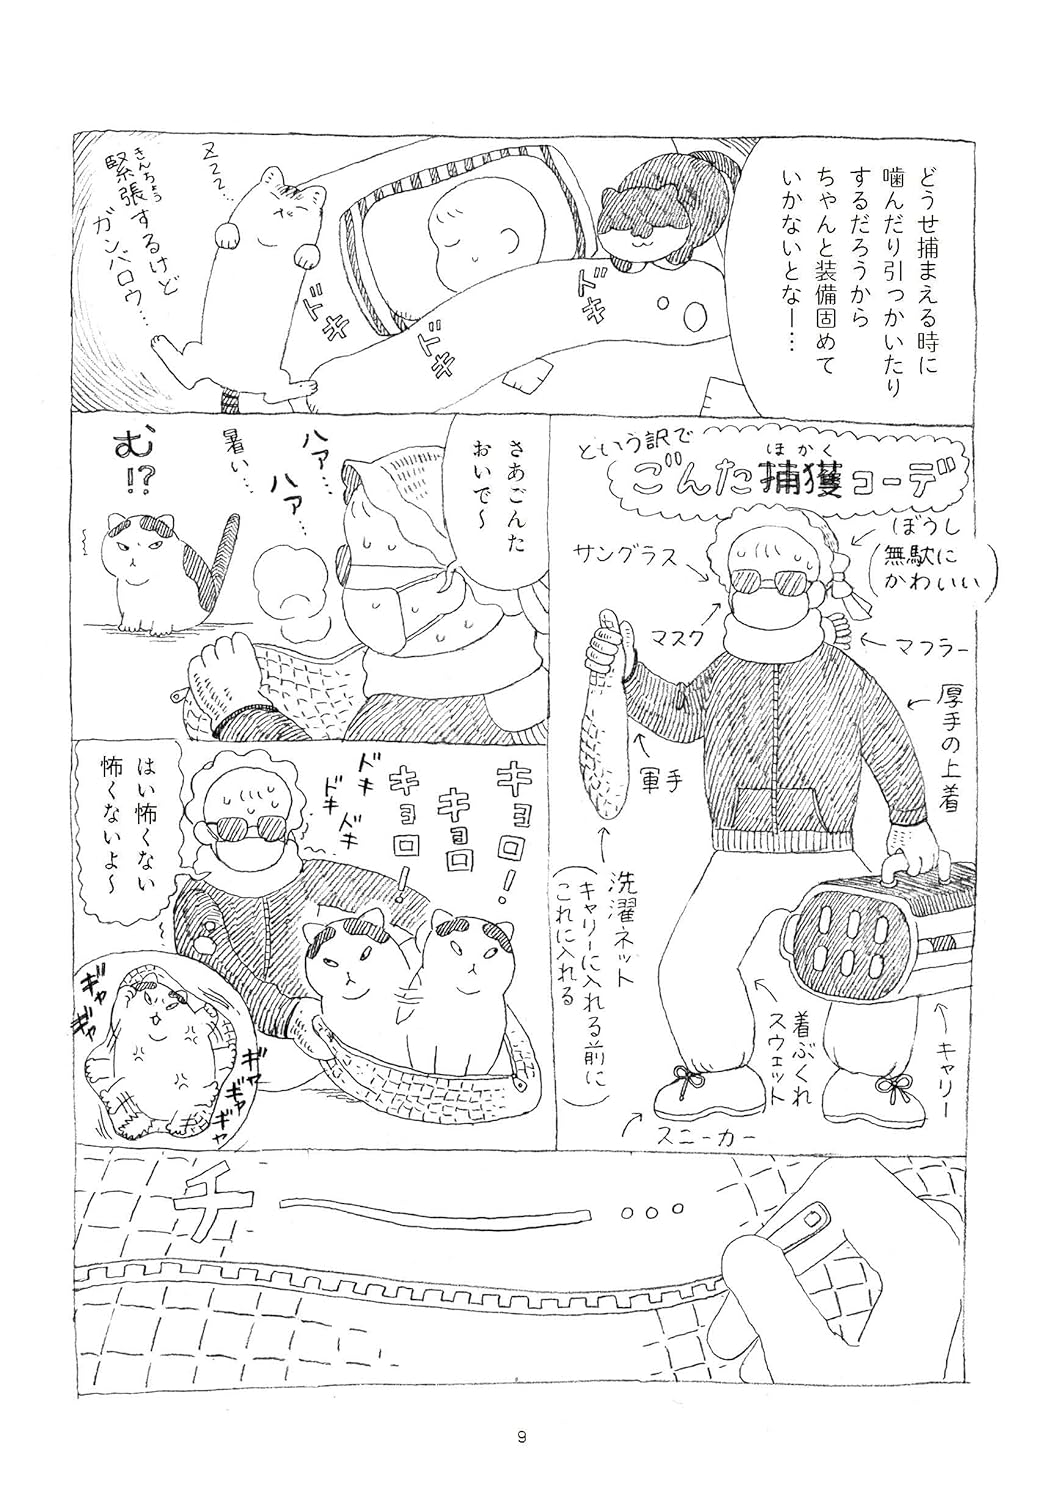 どうせ捕まえる時に
噛んだり引っかいたり
するだろうから
ちゃんと装備固めて
いかないとな―…
ズキ
ズキ
ズキ
Zzz…
きんちょう
緊張するけど
ガンバロウ…
という訳で
ほかく
ごんた捕獲コーデ
ぼうし
(無駄に
かわいい)
サングラス
マスク
マフラー
厚手の上着
軍手
洗濯ネット
(キャリーに入れる前に
これに入れる)
着ぶくれ
スウェット
キャリー
スニーカー
さあごんた
おいで〜
ハァ…
ハァ…
暑い…
む!?
キョロ!
キョロ
キョロ!
ドキ
ドキ
ドキ
はい怖くない
怖くないよ〜
ギャ
ギャ
ギャ
ギャ
ギャ
チー…
9